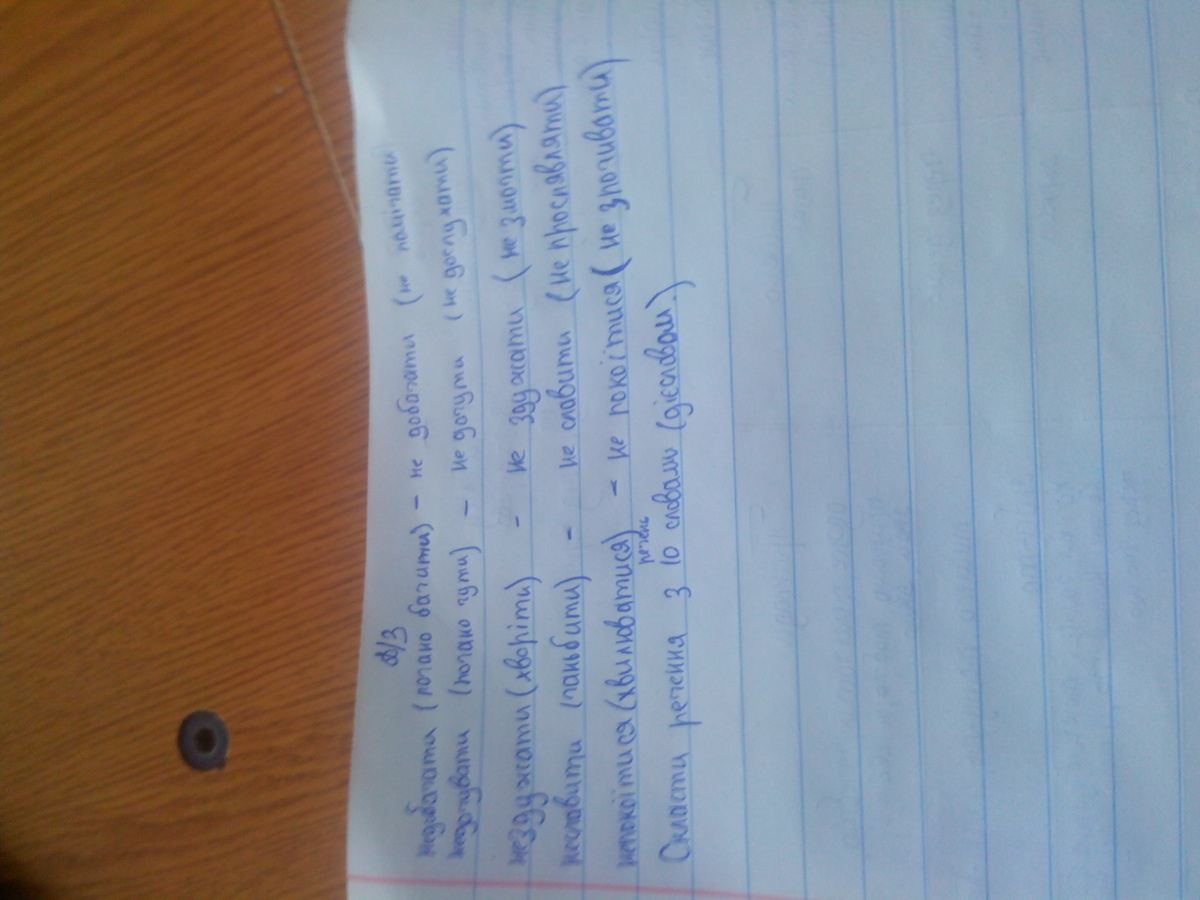 Д/З
недобачати (погано бачити) - не добачати (не помічати
недочувати (погано чути) - не дочути (не дослухати)
нездужати (хворіти) - не здужати (не змогти)
неславити (ганьбити) - не славити (не прославляти)
непокоїтися (хвилюватися) - не покоїтися (не зпочивати)
речень
Скласти речення з 10 словами (дієсловам.)